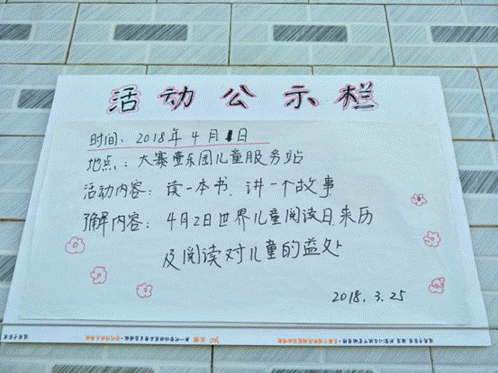 活动公示栏
时间：2018年4月1日
地点：大寨童乐园儿童服务站
活动内容：读一本书、讲一个故事
了解内容：4月2日世界儿童阅读日来历
及阅读对儿童的益处
2018.3.25